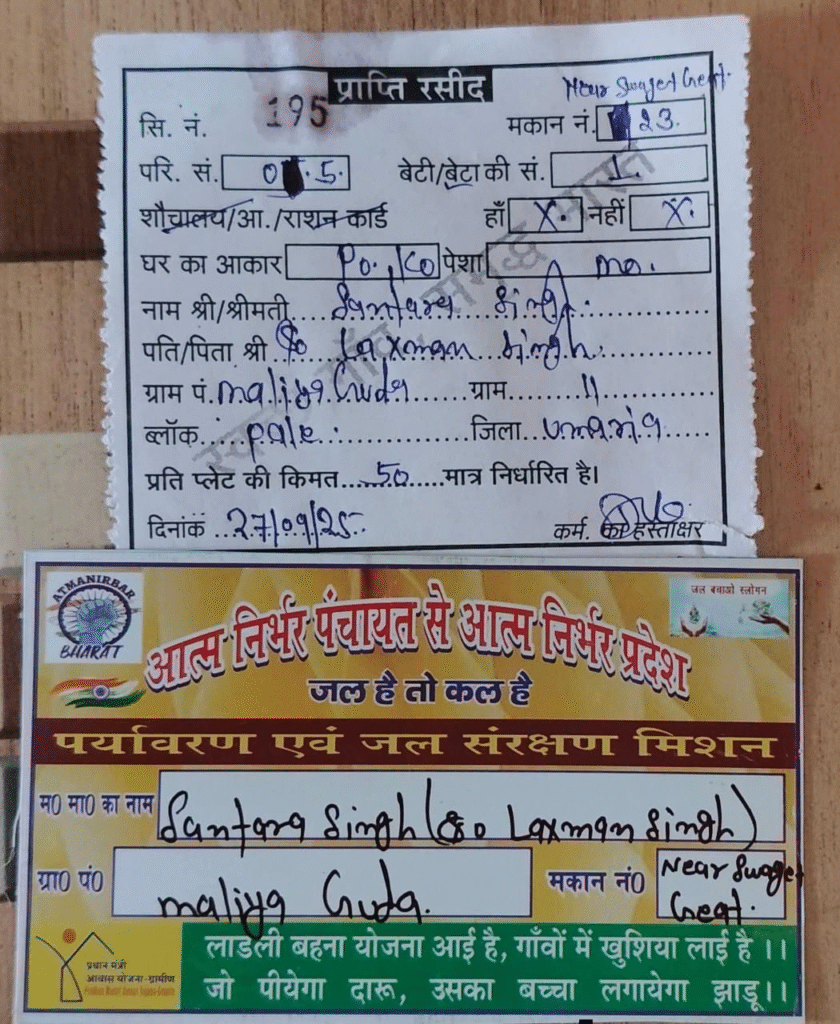 प्राप्ति रसीद
Near Swaget Geat.
सि. नं. 195
मकान नं. 23.
परि. सं. 0 .5. बेटी/बेटा की सं. 1.
शौचालय/आ./राशन कार्ड हाँ X. नहीं X.
घर का आकार Po. /Co पेशा mo.
नाम श्री/श्रीमती.....Santara Singh.
पति/पिता श्री S/o Laxman Singh.
ग्राम पं. maliya Guda ग्राम 11
ब्लॉक pale जिला umaria
प्रति प्लेट की किमत 50 मात्र निर्धारित है।
दिनांक 27/09/25
कर्म. का हस्ताक्षर
ATMANIRBAR BHARAT
जल बचाओ स्लोगन
आत्म निर्भर पंचायत से आत्म निर्भर प्रदेश
जल है तो कल है
पर्यावरण एवं जल संरक्षण मिशन
म0 मा0 का नाम Santara Singh (S/o Laxman Singh)
ग्रा0 पं0 maliya Guda. मकान नं0 Near Swaget Geat.
प्रधान मंत्री
आवास योजना-ग्रामीण
लाडली बहना योजना आई है, गाँवों में खुशिया लाई है ।।
जो पीयेगा दारू, उसका बच्चा लगायेगा झाडू।।